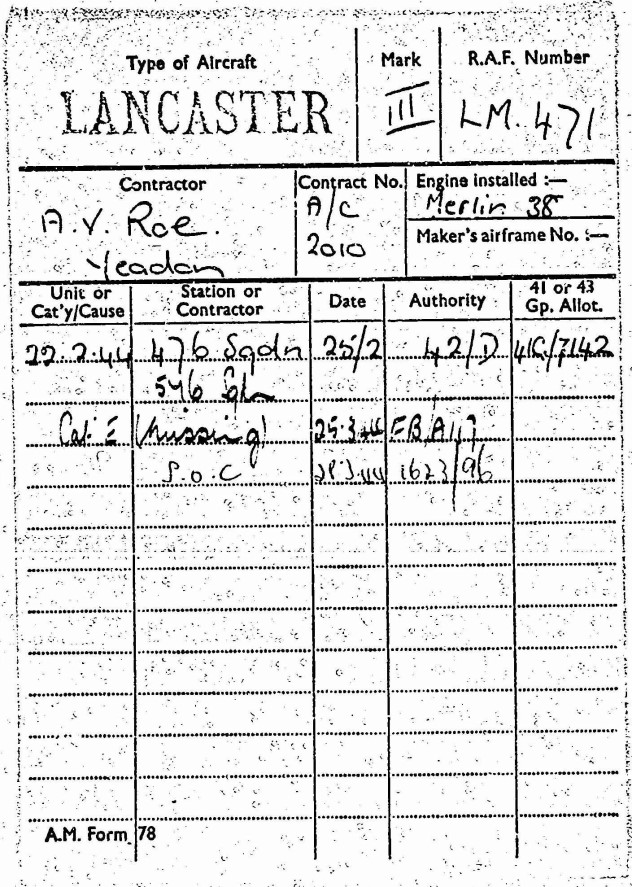 Type of Aircraft
LANCASTER
Mark
III
R.A.F. Number
LM.471
Contractor
A.V. Roe.
Yeadon
Contract No.
A/C
2010
Engine installed :—
Merlin 38
Maker's airframe No. :—
Unit or Cat'y/Cause
Station or Contractor
Date
Authority
41 or 43 Gp. Allot.
22.2.44 476 Sqdn 25/2 42/D 41G/7142
576
Cat. E (Missing) 25.3.44 FB A117
S.O.C 1623/96
A.M. Form 78